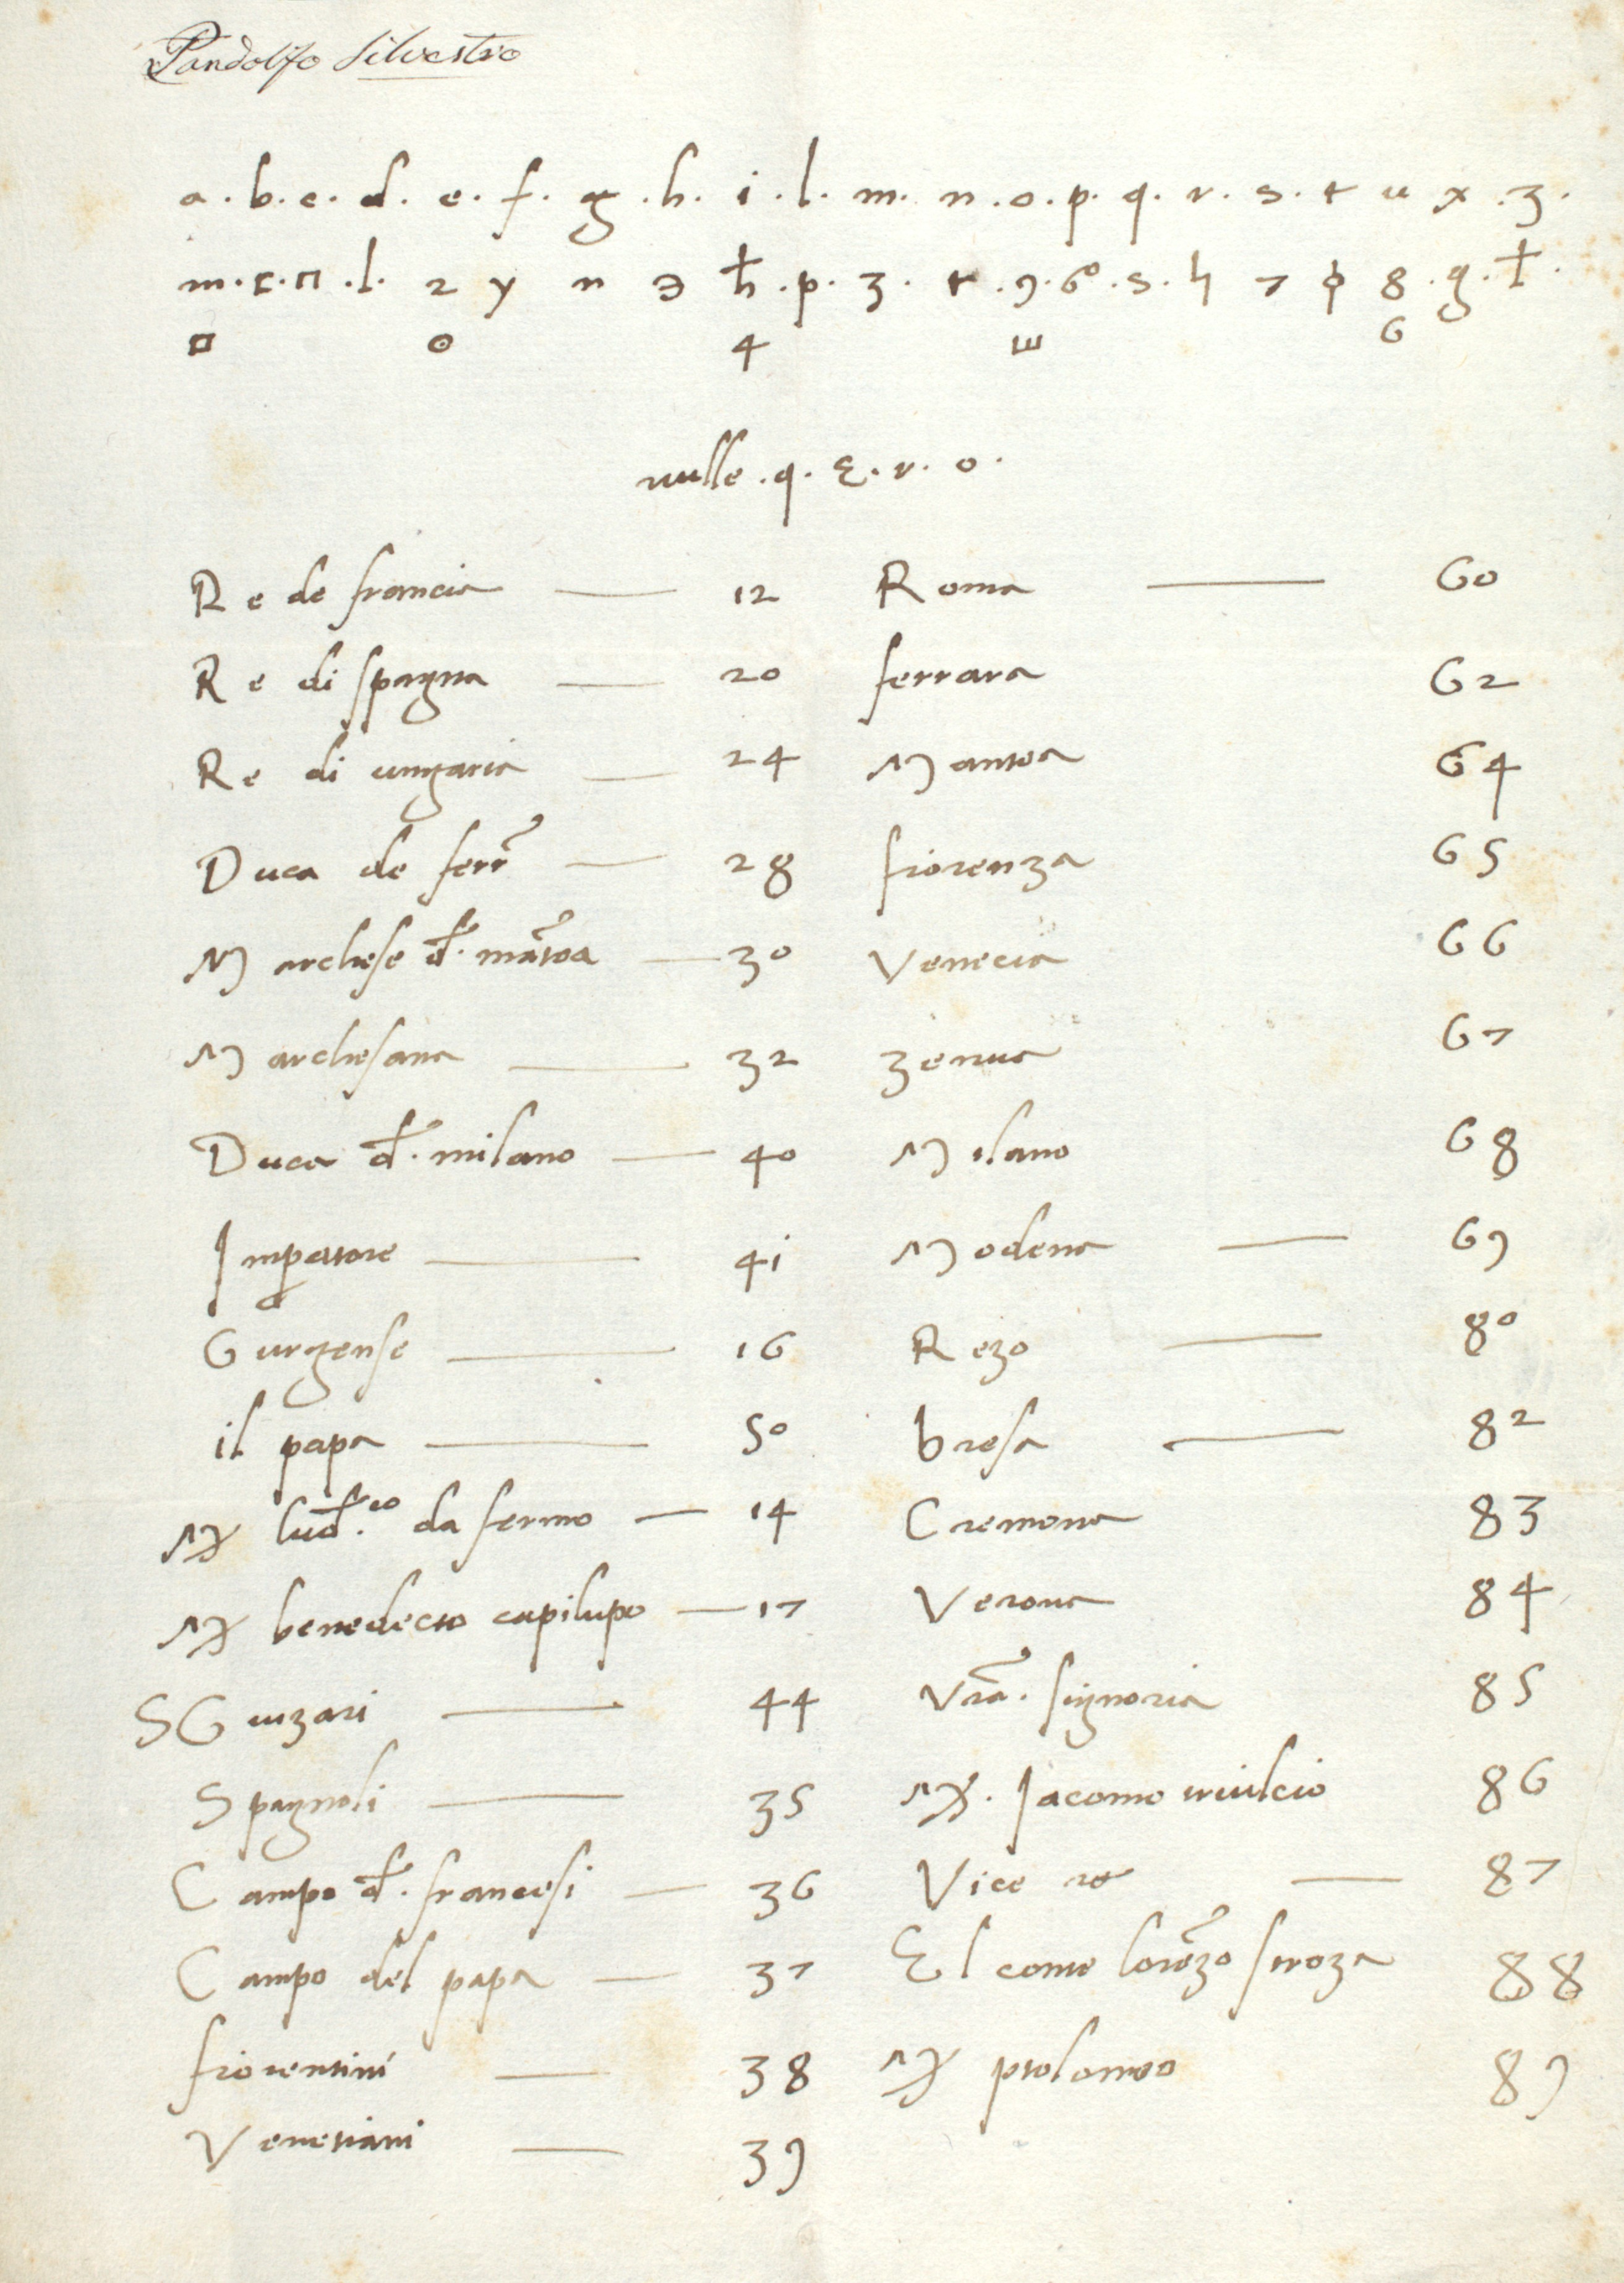 Pandolfo Silvestro
a . b . c . d . e . f . g . h . i . l . m . n . o . p . q . r . s . t u x . z .
m . l . 2 y n p . 3 . 9 . 6º . s . 7 ϕ 8 . g .
o 4 6
nulle . q . ε . r . o .
Re de francia — 12
Re di spagna — 20
Re di ungaria — 24
Duca de ferr — 28
Marchese d. mãtoa — 30
Marchesana — 32
Duca d. milano — 40
Imperatore — 41
Gurgense — 16
il papa — 50
M lud.co da fermo — 14
M benedecto capilupo — 17
SGuizari — 44
Spagnoli — 35
Campo d. francesi — 36
Campo del papa — 37
fiorentini — 38
Venetiani — 39
Roma — 60
ferrara 62
Mantoa 64
fiorenza 65
Venecia 66
Zenua 67
Milano 68
Modena — 69
Rezo — 80
bresa — 82
Cremona 83
Verona 84
Vrã . signoria 85
M . Jacomo triulcio 86
Vice re — 87
El conte lorẽzo stroza 88
M ptolomeo 89